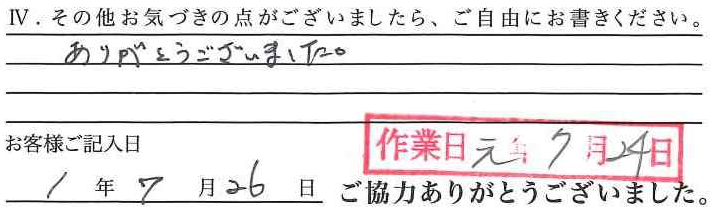 Ⅳ．その他お気づきの点がございましたら、ご自由にお書きください。
ありがとうございました。
お客様ご記入日
作業日 元年 7月24日
1年 7月26日
ご協力ありがとうございました。